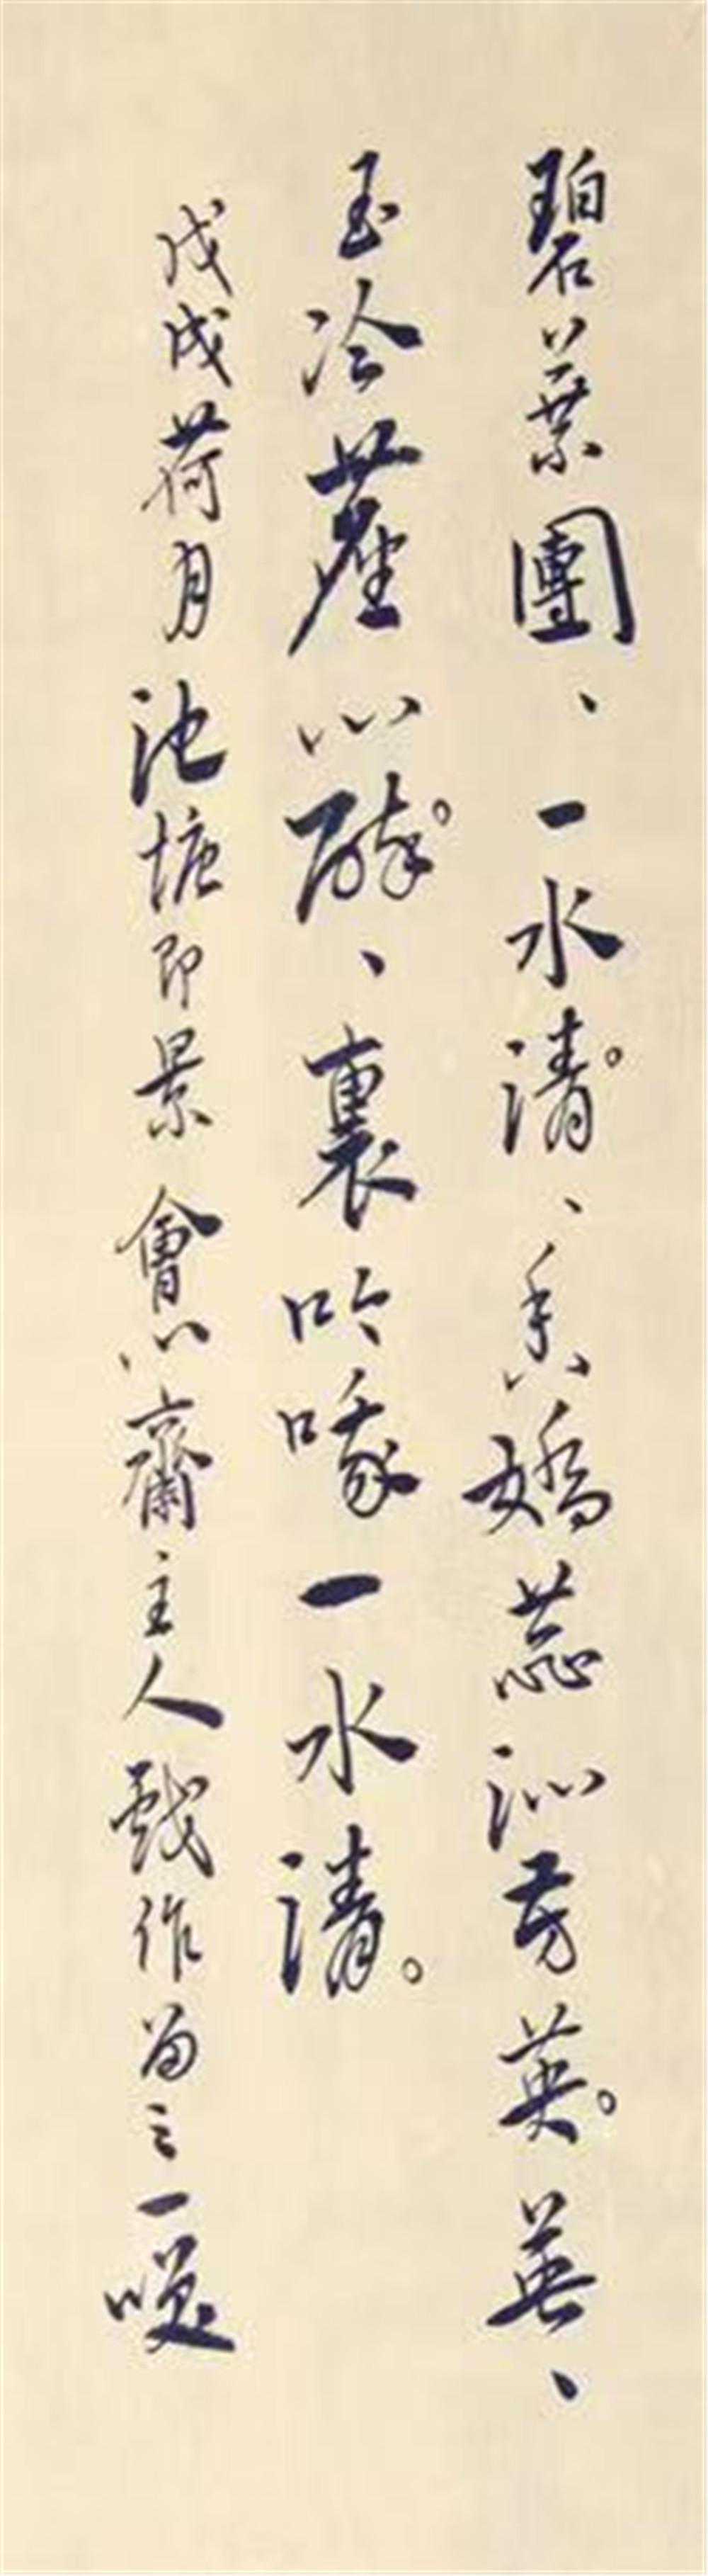 碧葉團、一水清。、香嬌蕊沁芳英。、
玉冷塵心醉。、裏吟哦一水清。
戊戌荷月池塘即景會心齋主人戲作留之一